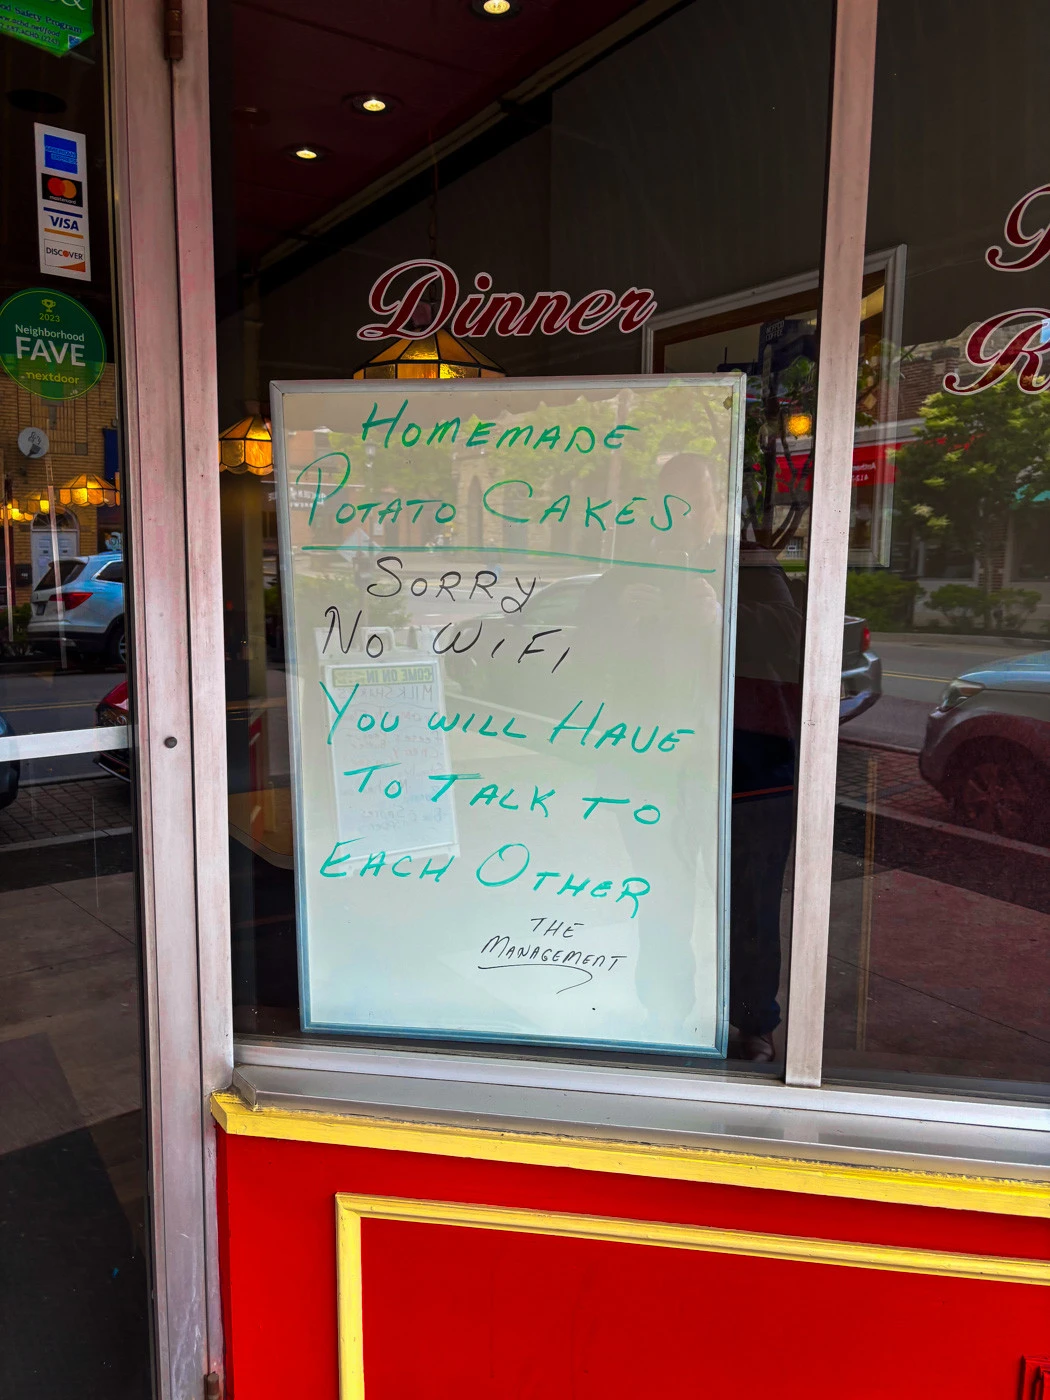 Food Safety Program
AMERICAN EXPRESS
mastercard
VISA
DISCOVER
2023
Neighborhood
FAVE
nextdoor
Dinner
HOMEMADE
POTATO CAKES
SORRY
NO WIFI
YOU WILL HAVE
TO TALK TO
EACH OTHER
THE
MANAGEMENT
COME ON IN